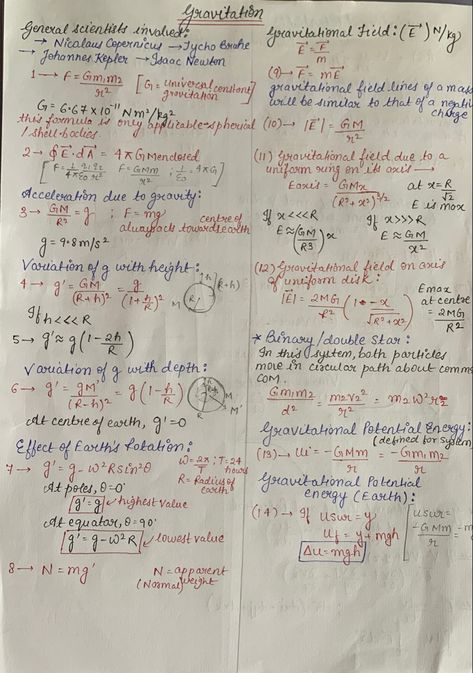 Gravitation
General scientists involved:
→ Nicolaus Copernicus → Tycho Brahe
→ Johannes Kepler → Isaac Newton
1 → F = Gm1m2/r² [G = Universal constant gravitation]
G = 6.67 × 10⁻¹¹ Nm²/kg²
this formula is only applicable - spherical
/ shell - bodies.
2 → ∮E⃗.dA⃗ = 4πGMenclosed
Acceleration due to gravity:
3 → GM/R² = g ; F = mg centre of
always act towards earth
g = 9.8 m/s²
Variation of g with height:
4 → g' = GM/(R+h)² = g/(1+h/R)²
h
(R+h)
R
M
If h <<< R
5 → g' ≈ g(1 - 2h/R)
Variation of g with depth:
6 → g' = gM'/(R-h)² = g(1 - h/R)
R
M
M'
At centre of earth, g' = 0
Effect of Earth's Rotation:
7 → g' = g - ω²R sin²θ
ω = 2π/T ; T = 24 hours
R = Radius of earth
At poles, θ = 0°
g' = g ↙ highest value
At equator, θ = 90°
g' = g - ω²R ↙ lowest value
8 → N = mg' N = apparent
(Normal) weight
Gravitational Field: (E⃗) N/kg
E⃗ = F⃗/m
(9) → F⃗ = mE⃗
gravitational field lines of a mass
will be similar to that of a negative
charge
(10) → |E⃗| = GM/r²
(11) Gravitational field due to a
uniform ring on its axis →
Eaxis = GMx/(R²+x²)^3/2
at x = R/√2
E is max
If x <<< R
E ≈ (GM/R³)x
If x >>> R
E ≈ GM/x²
(12) Gravitational field on axis
of uniform disk:
|E⃗| = 2MG/R² (1 - x/√(R²+x²))
Emax
at centre
= 2MG/R²
* Binary / double Star:
In this system, both particles
move in circular path about
COM.
Gm1m2/d² = m2v2²/r2 = m2ω²r2
Gravitational Potential Energy:
(defined for system)
(13) → Ui = -GMm/r = -Gm1m2/r
Gravitational Potential
energy (Earth):
(14) → If Usur = y
Uf = y + mgh
Δu = mgh
Usur =
-GMm/r